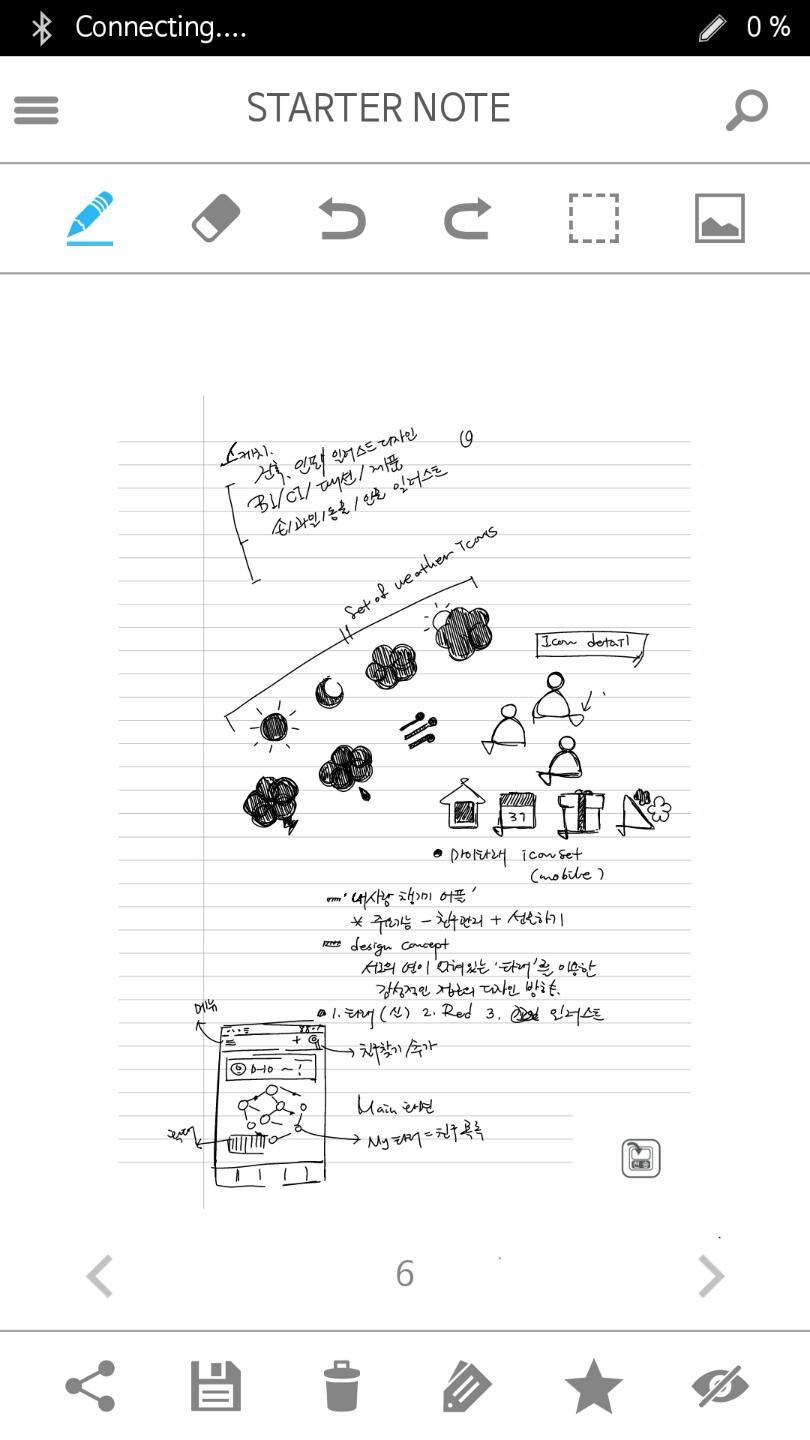 Connecting....
0 %
STARTER NOTE
스케치.
건축, 인물 일러스트 디자인
BI/CI/패션/제품
손/과일/동물/인물 일러스트
Set of weather Icons
Icon detail
31
마이타래 icon set
(mobile)
'내사람 챙기미 어플'
* 주요기능 - 친구관리 + 선물하기
design concept
서로의 연이 되어있는 '타래'를 이용한
감성적인 접근의 디자인 방향.
1. 타래 (신) 2. Red 3. 일러스트
메뉴
+
친구찾기/추가
D-10 ~ !
Main 화면
My타래 = 친구목록
6